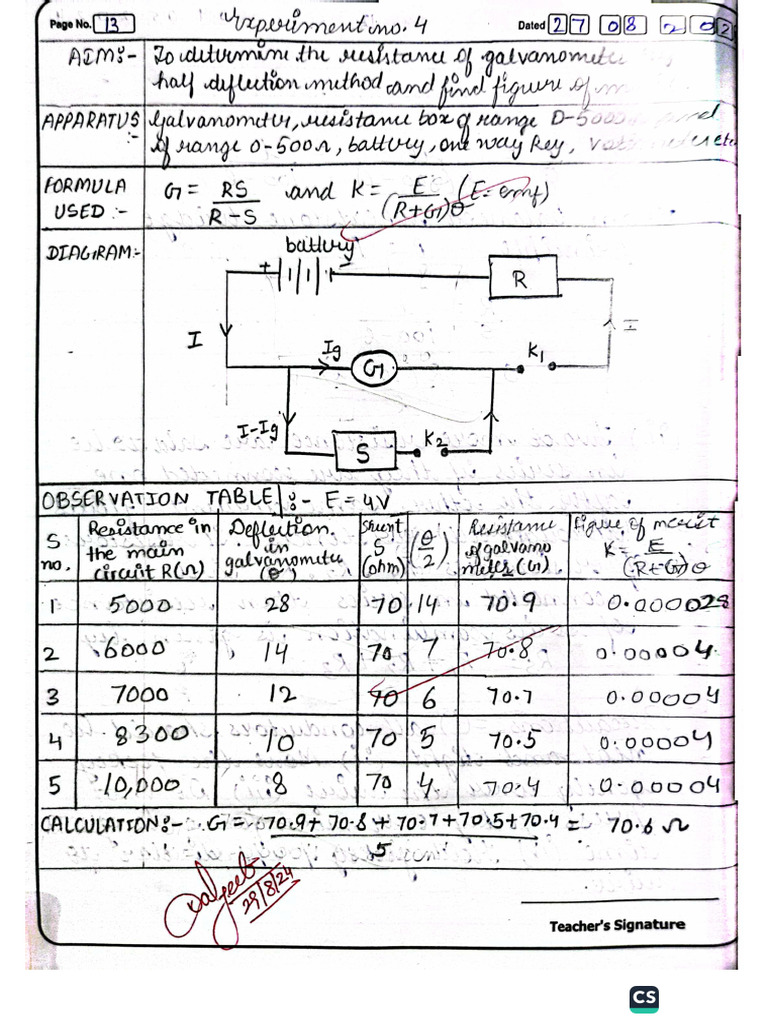 Page No. 13
Experiment no. 4
Dated 27 08 202
AIM:- To determine the resistance of galvanometer
half deflection method and find figure of m
APPARATUS :- Galvanometer, resistance box of range 0-5000
of range 0-500Ω, battery, one way key,
FORMULA USED :- G = RS / R-S and K = E / (R+G)θ (E = emf)
DIAGRAM:-
battery
+ -
R
I
I
Ig
G
K1
I-Ig
S
K2
OBSERVATION TABLE :- E = 4V
S no. | Resistance in the main circuit R(Ω) | Deflection in galvanometer (θ) | Shunt S (ohm) | (θ/2) | Resistance of galvanometer (G) | Figure of merit K = E / (R+G)θ
1 | 5000 | 28 | 70 | 14 | 70.9 | 0.000028
2 | 6000 | 14 | 70 | 7 | 70.8 | 0.00004
3 | 7000 | 12 | 70 | 6 | 70.7 | 0.00004
4 | 8300 | 10 | 70 | 5 | 70.5 | 0.00004
5 | 10,000 | 8 | 70 | 4 | 70.4 | 0.00004
CALCULATION:- G = 70.9 + 70.8 + 70.7 + 70.5 + 70.4 / 5 = 70.6 Ω
29/8/24
Teacher's Signature
CS